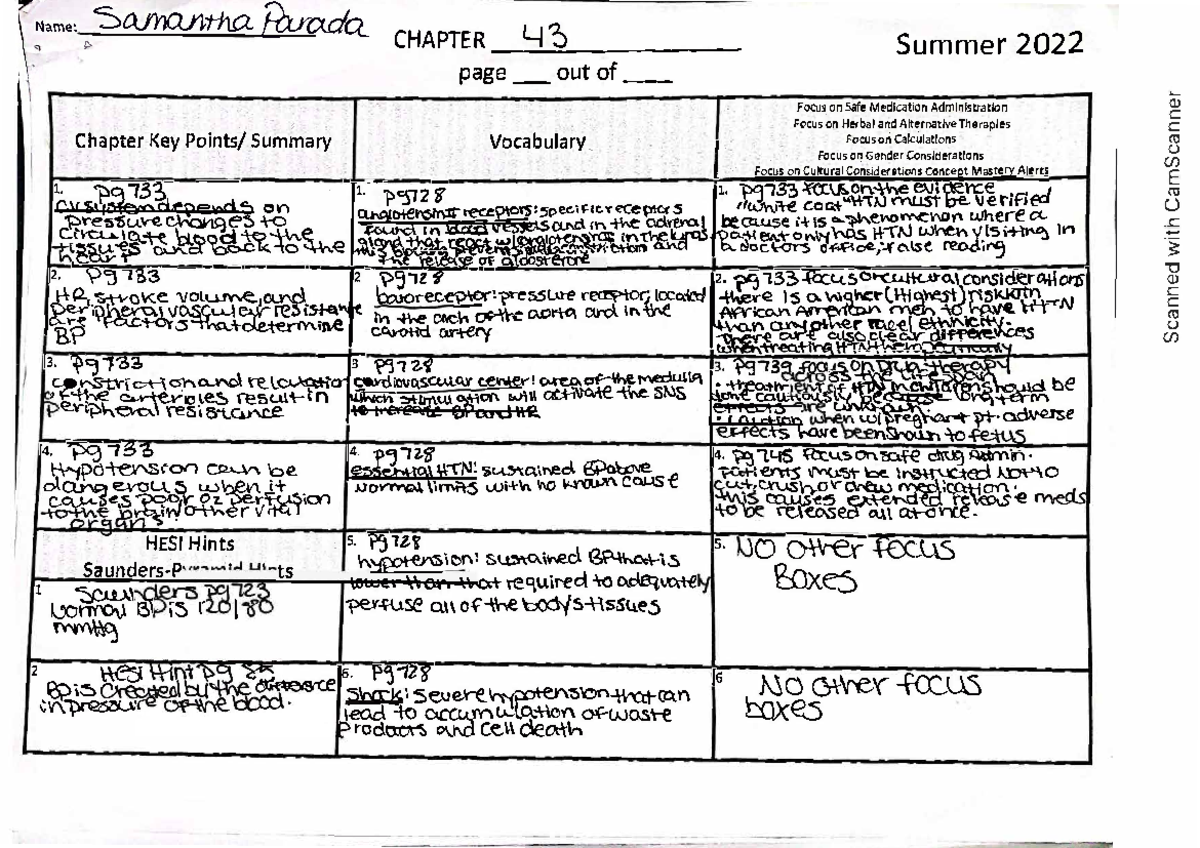 Name: Samantha Parada
CHAPTER 43
Summer 2022
page ___ out of ____
Chapter Key Points/ Summary
Vocabulary
Focus on Safe Medication Administration
Focus on Herbal and Alternative Therapies
Focus on Calculations
Focus on Gender Considerations
Focus on Cultural Considerations Concept Mastery Alerts
1. pg 733
CV system depends on
pressure changes to
circulate blood to the
tissues and back to the
heart
1. pg 728
angiotensin II receptors: specific receptors
found in blood vessels and in the adrenal
gland that react w/ angiotensin
and
the release of aldosterone
1. pg 733 focus on the evidence
"white coat" HTN must be verified
because it is a phenomenon where a
patient only has HTN when visiting in
a doctors office, false reading
2. pg 733
HR, stroke volume, and
peripheral vascular resistance
are factors that determine
BP
2 pg 728
baroreceptor: pressure receptor; located
in the arch of the aorta and in the
carotid artery
2. pg 733 focus on cultural considerations
there is a higher (highest) risk in
African American men to have HTN
than any other race/ ethnicity.
There are also clear differences
when treating HTN
3. pg 733
constriction and relaxation
of the arterioles result in
peripheral resistance
3 pg 728
cardiovascular center: area of the medulla
which stimulation will activate the SNS
to increase BP and HR
3. pg 739 focus on Drug therapy
across the
· treatment of HTN in children should be
done cautiously because long term
effects are unknown
· caution when w/ pregnant pt. adverse
effects have been shown to fetus
4. pg 733
Hypotension can be
dangerous when it
causes poor O2 perfusion
to the brain/other vital
organs.
4. pg 728
essential HTN: sustained BP above
normal limits with no known cause
4. pg 745 focus on safe drug Admin.
Patients must be instructed NOT to
cut, crush or chew medication.
this causes extended release meds
to be released all at once.
HESI Hints
Saunders-Pyramid Hints
5. pg 728
hypotension: sustained BP that is
lower than that required to adequately
perfuse all of the body's tissues
5. NO other focus
Boxes
1 Saunders pg 723
Normal BP is 120/80
mmHg
2 HESI Hint pg
BP is created by the difference
in pressure of the blood.
6. pg 728
Shock: severe hypotension that can
lead to accumulation of waste
products and cell death
6 NO other focus
boxes
Scanned with CamScanner